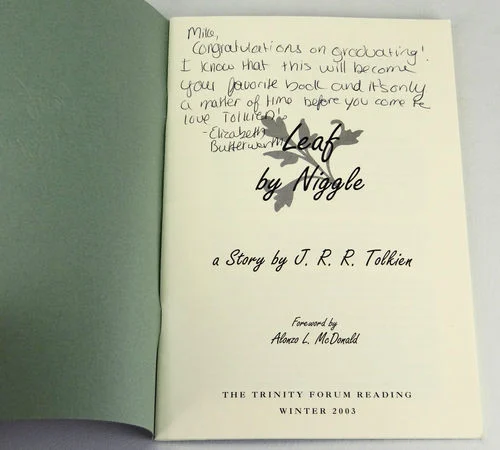 Mike,
Congratulations on graduating!
I know that this will become
your favorite book and it's only
a matter of time before you come to
love Tolkien!
-Elizabeth
Butterworth
Leaf
by Niggle
a Story by J. R. R. Tolkien
Foreword by
Alonzo L. McDonald
THE TRINITY FORUM READING
WINTER 2003